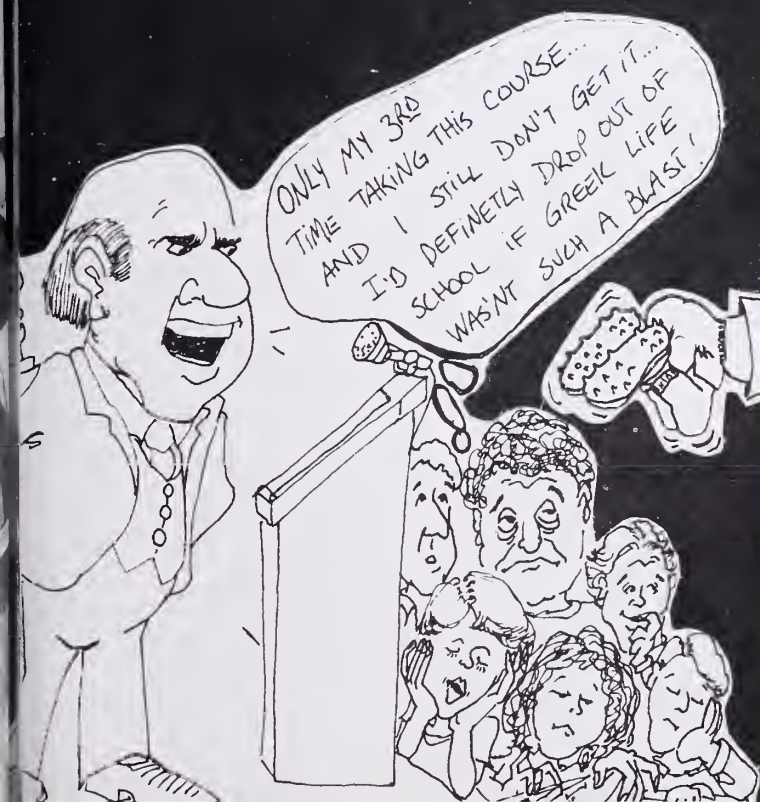 ONLY MY 3RD
TIME TAKING THIS COURSE...
AND I STILL DON'T GET IT...
I'D DEFINETLY DROP OUT OF
SCHOOL IF GREEK LIFE
WAS'NT SUCH A BLAST!